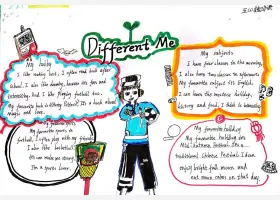 Different Me
My hobby
I like reading best, I often read book after
school. I also like drawing, because it's fun and
interesting. I like playing football too.
My favourite book is Harry Potter. It's a book about
Magic and love.
My favourite sports
My favourite sport is
football, I often play with my friends
I also like basketball
can make me strong.
I'm a sports lover.
My subjects
I have four classes in the morning,
I also have two classes in afternoon
My favourite subject is English.
I can learn the western holiday,
history and food. I think is interesting
My favourite holiday
My favourite holiday is
Mid-Autumn Festival. It's a
traditional Chinese festival. I can
enjoy bright full moon and
eat moon cakes on that day.